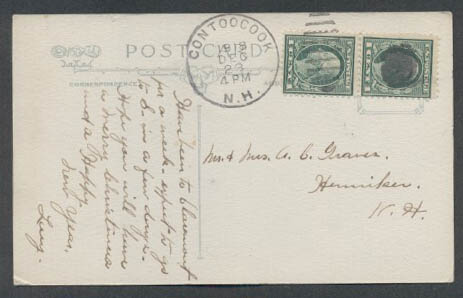 POST CARD
CORRESPONDENCE
CONTOOCOOK
DEC
23
4 PM
N.H.
Have been to Claremont
for a week - expect to go
to B. in a few days.
Hope you will have
a merry Christmas
and a Happy
New Year,
Lucy.
Mr. & Mrs. A. C. Graves.
Henniker.
N. H.